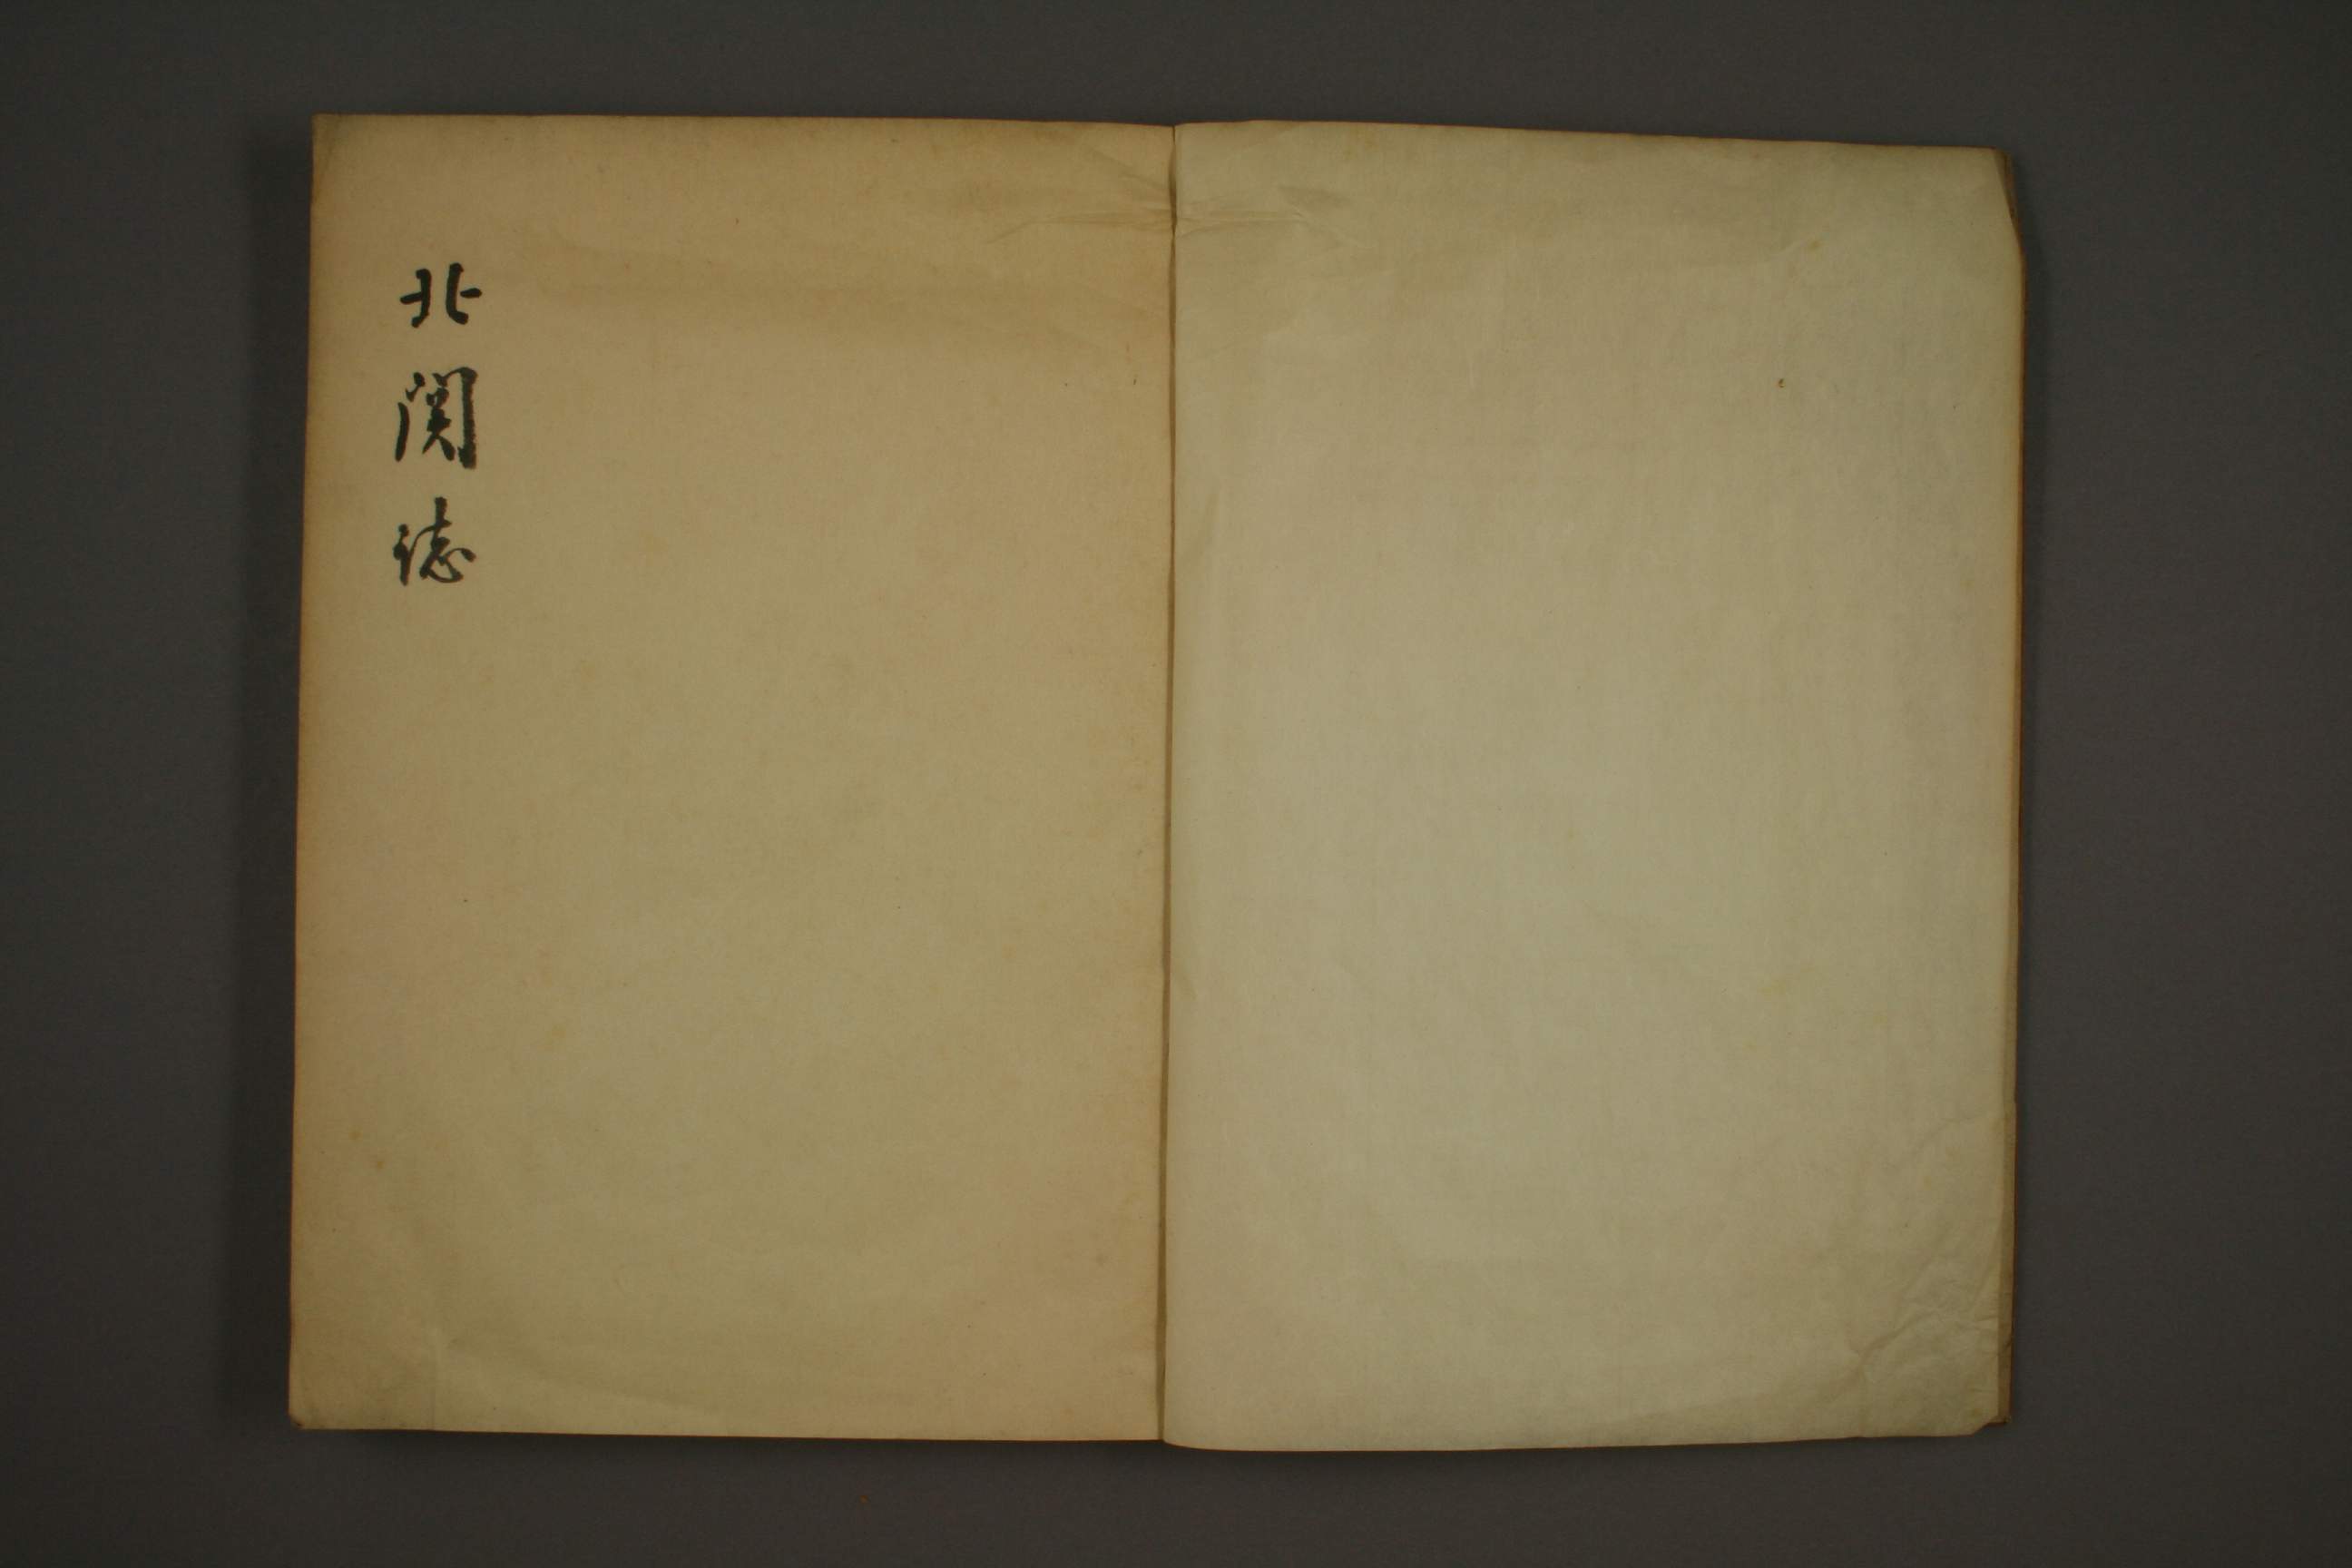 北関誌